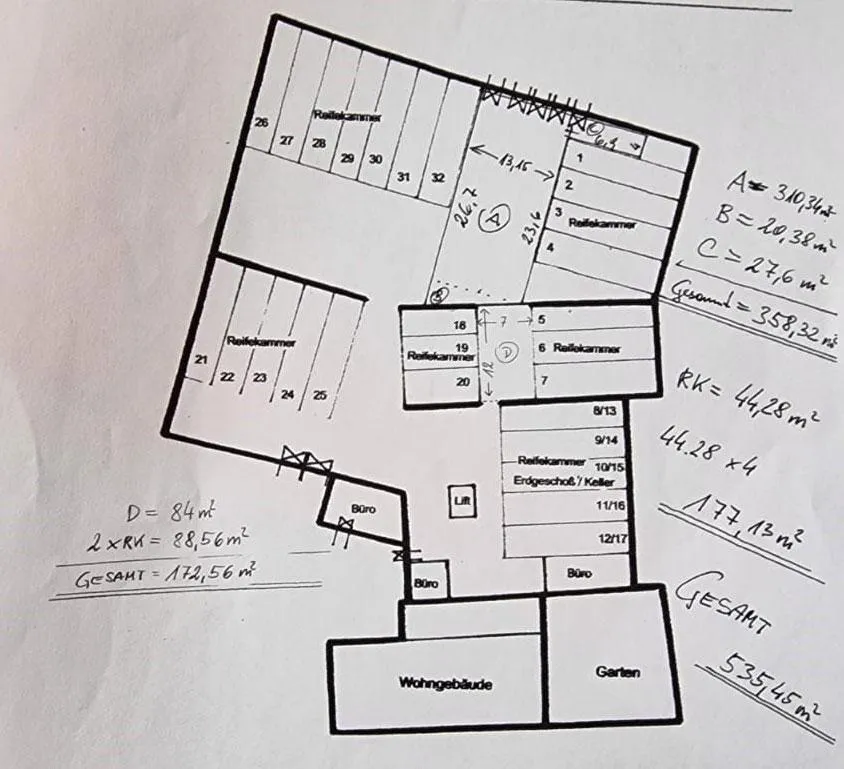 Reifekammer
26
27
28
29
30
31
32
13,15
26,7
A
23,6
C
6,9
1
2
3 Reifekammer
4
A = 310,34m²
B = 20,38m²
C = 27,6 m²
Gesamt = 358,32 m²
B
18
19
Reifekammer
20
7
12
D
5
6 Reifekammer
7
Reifekammer
21
22
23
24
25
RK = 44,28m²
44.28 x4
177,13m²
8/13
9/14
Reifekammer 10/15
Erdgeschoß / Keller
11/16
12/17
Lift
Büro
Büro
Büro
D = 84m²
2 x RK = 88,56m²
GESAMT = 172,56 m²
GESAMT
535,45m²
Wohngebäude
Garten